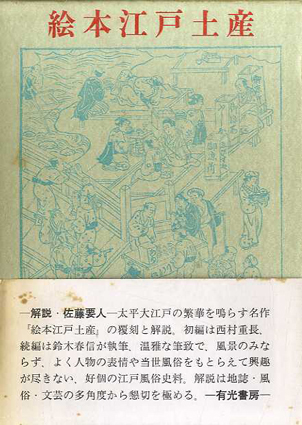 絵本江戸土産
―解説・佐藤要人―太平大江戸の繁華を鳴らす名作
『絵本江戸土産』の覆刻と解説。初編は西村重長、
続編は鈴木春信が執筆、温雅な筆致で、風景のみな
らず、よく人物の表情や当世風俗をもとらえて興趣
が尽きない、好個の江戸風俗史料。解説は地誌・風
俗・文芸の多角度から懇切を極める。―有光書房―